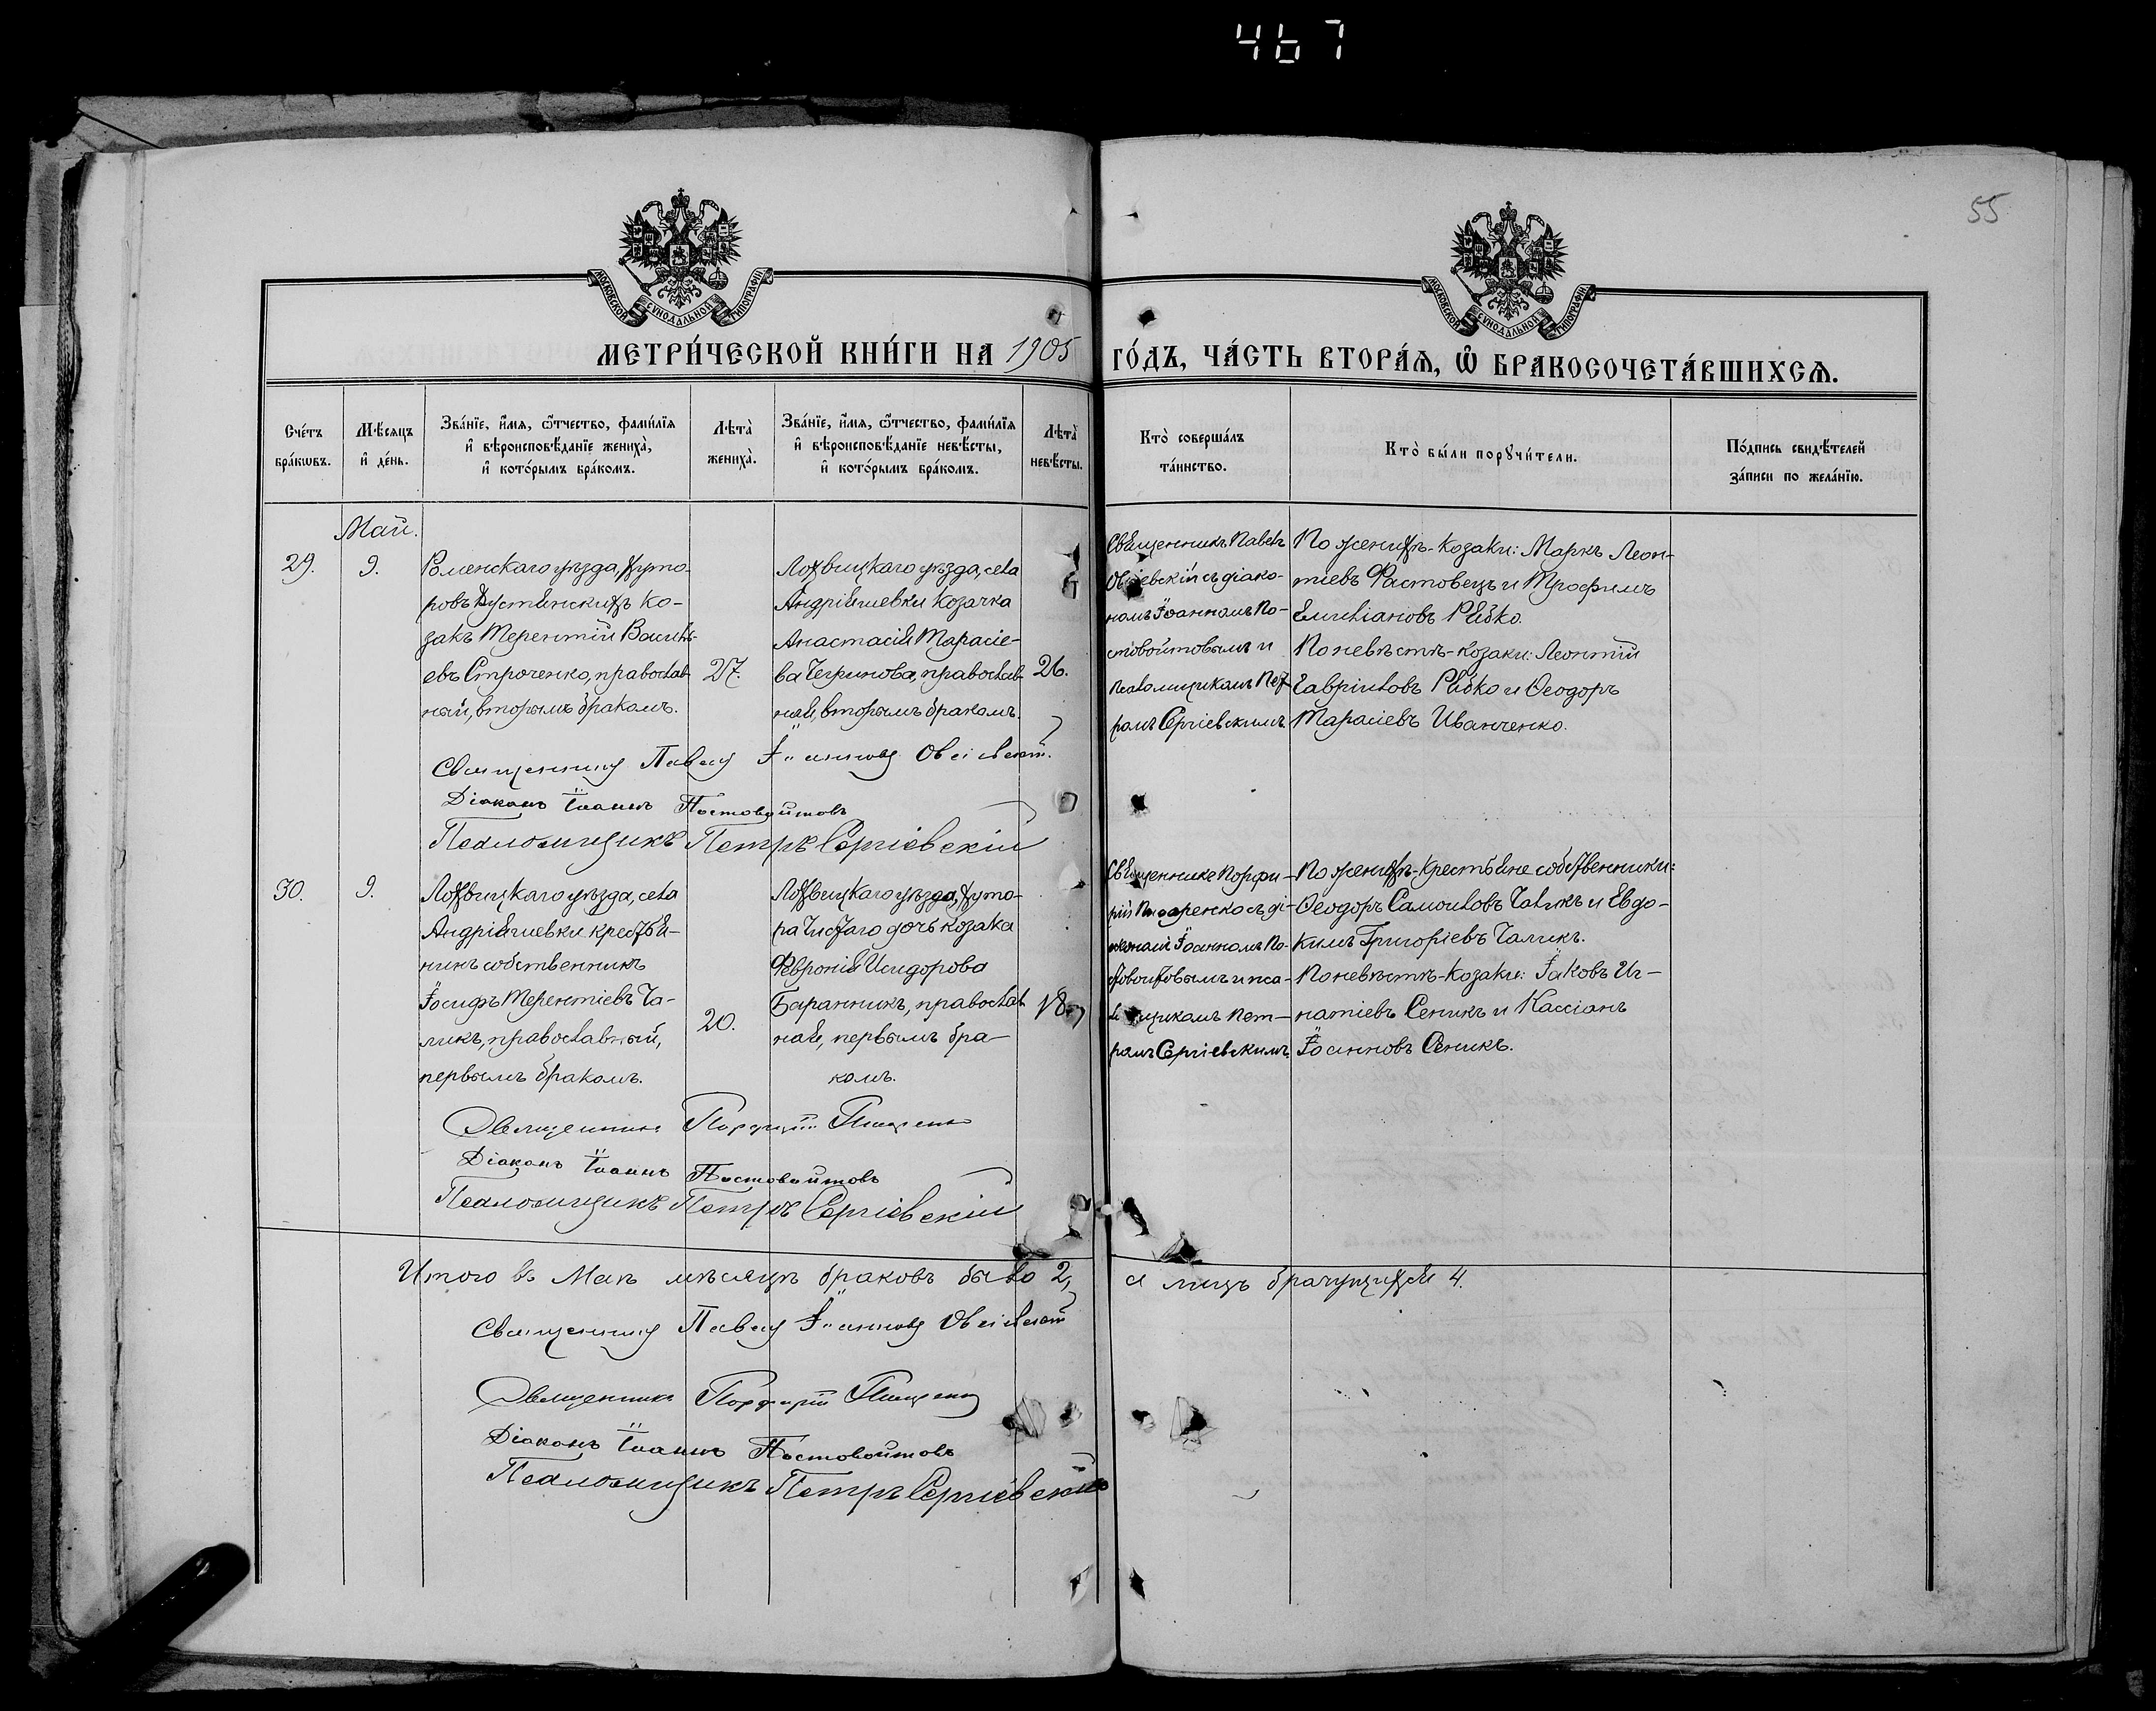 467
55
МОСКОВСКОЙ СѴНОДАЛЬНОЙ ТИПОГРАФІИ
МОСКОВСКОЙ СѴНОДАЛЬНОЙ ТИПОГРАФІИ
МЕТРИ́ЧЕСКОЙ КНИ́ГИ НА 1905 ГО́ДЪ, ЧА́СТЬ ВТОРА́Ѧ, Ѡ҆ БРАКОСОЧЕТА́ВШИХСѦ.
Сче́тъ
бра́кѡвъ.
Мѣ́сѧцъ
и҆ де́нь.
Зва́нїе, и҆́мѧ, ѻ҆́тчество, фами́лїѧ
и҆ вѣроисповѣ́данїе жениха̀,
и҆ кото́рымъ бра́комъ.
Лѣта̀
жениха̀.
Зва́нїе, и҆́мѧ, ѻ҆́тчество, фами́лїѧ
и҆ вѣроисповѣ́данїе невѣ́сты,
и҆ кото́рымъ бра́комъ.
Лѣта̀
невѣ́сты.
Кто̀ соверша́лъ
та́инство.
Кто̀ бы́ли порꙋчи́тели.
По́дпись свидѣ́телей
за́писи по жела́нїю.
Май.
29.
9.
Роменскаго уѣзда, хуто-
ровъ Пустынскихъ ко-
закъ Терентій Василь-
евъ Строченко, православ-
ный, вторымъ бракомъ.
27.
Лохвицкаго уѣзда, села
Андріяшевки козачка
Анастасія Тарасіе-
ва Чегринова, православ-
ная, вторымъ бракомъ.
26.
Священникъ Павелъ
Овсіевскій съ діако-
номъ Іоанномъ По-
стовойтовымъ и
псаломщикомъ Пет-
ромъ Сергіевскимъ
По женихѣ-козаки: Маркъ Леон-
тіевъ Фастовецъ и Трофимъ
Емиліановъ Рябко.
По невѣстѣ-козаки: Леонтій
Гавріиловъ Рябко и Ѳеодоръ
Тарасіевъ Иванченко.
Священникъ Павелъ Іоанновъ Овсіевскій.
Діаконъ Іоаннъ Постовойтовъ
Псаломщикъ Петръ Сергіевскій
30.
9.
Лохвицкаго уѣзда, села
Андріяшевки крестья-
нинъ собственникъ
Іосифъ Терентіевъ Ча-
ликъ, православный,
первымъ бракомъ.
20.
Лохвицкаго уѣзда, хуто-
ра Чистаго дочь козака
Февронія Исидорова
Баранникъ, православ-
ная, первымъ бра-
комъ.
18.
Священникъ Порфи-
рій съ ді-
акономъ Іоанномъ По-
стовойтовымъ и пса-
ломщикомъ Пет-
ромъ Сергіевскимъ
По женихѣ-крестьяне собственники:
Ѳеодоръ Самоиловъ Чаликъ и Евдо-
кимъ Григоріевъ Чаликъ.
По невѣстѣ-козаки: Іаковъ Иг-
натіевъ Сеникъ и Кассіанъ
Іоанновъ Сеникъ.
Священникъ Порфирій
Діаконъ Іоаннъ Постовойтовъ
Псаломщикъ Петръ Сергіевскій
Итого въ Маѣ мѣсяцѣ браковъ было 2, а лицъ брачущихся 4.
Священникъ Павелъ Іоанновъ Овсіевскій
Священникъ Порфирій
Діаконъ Іоаннъ Постовойтовъ
Псаломщикъ Петръ Сергіевскій